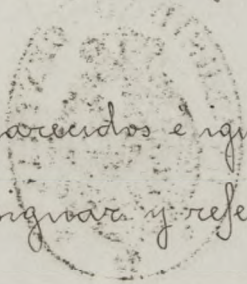 arecidos é igu
iguar y refe